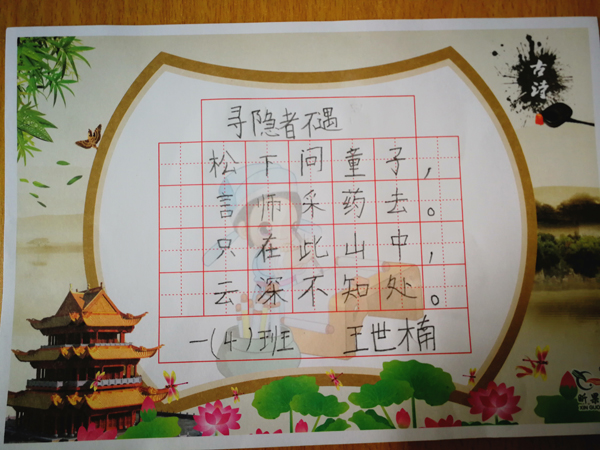 古诗
寻隐者不遇
松下问童子，
言师采药去。
只在此山中，
云深不知处。
一(4)班 王世楠